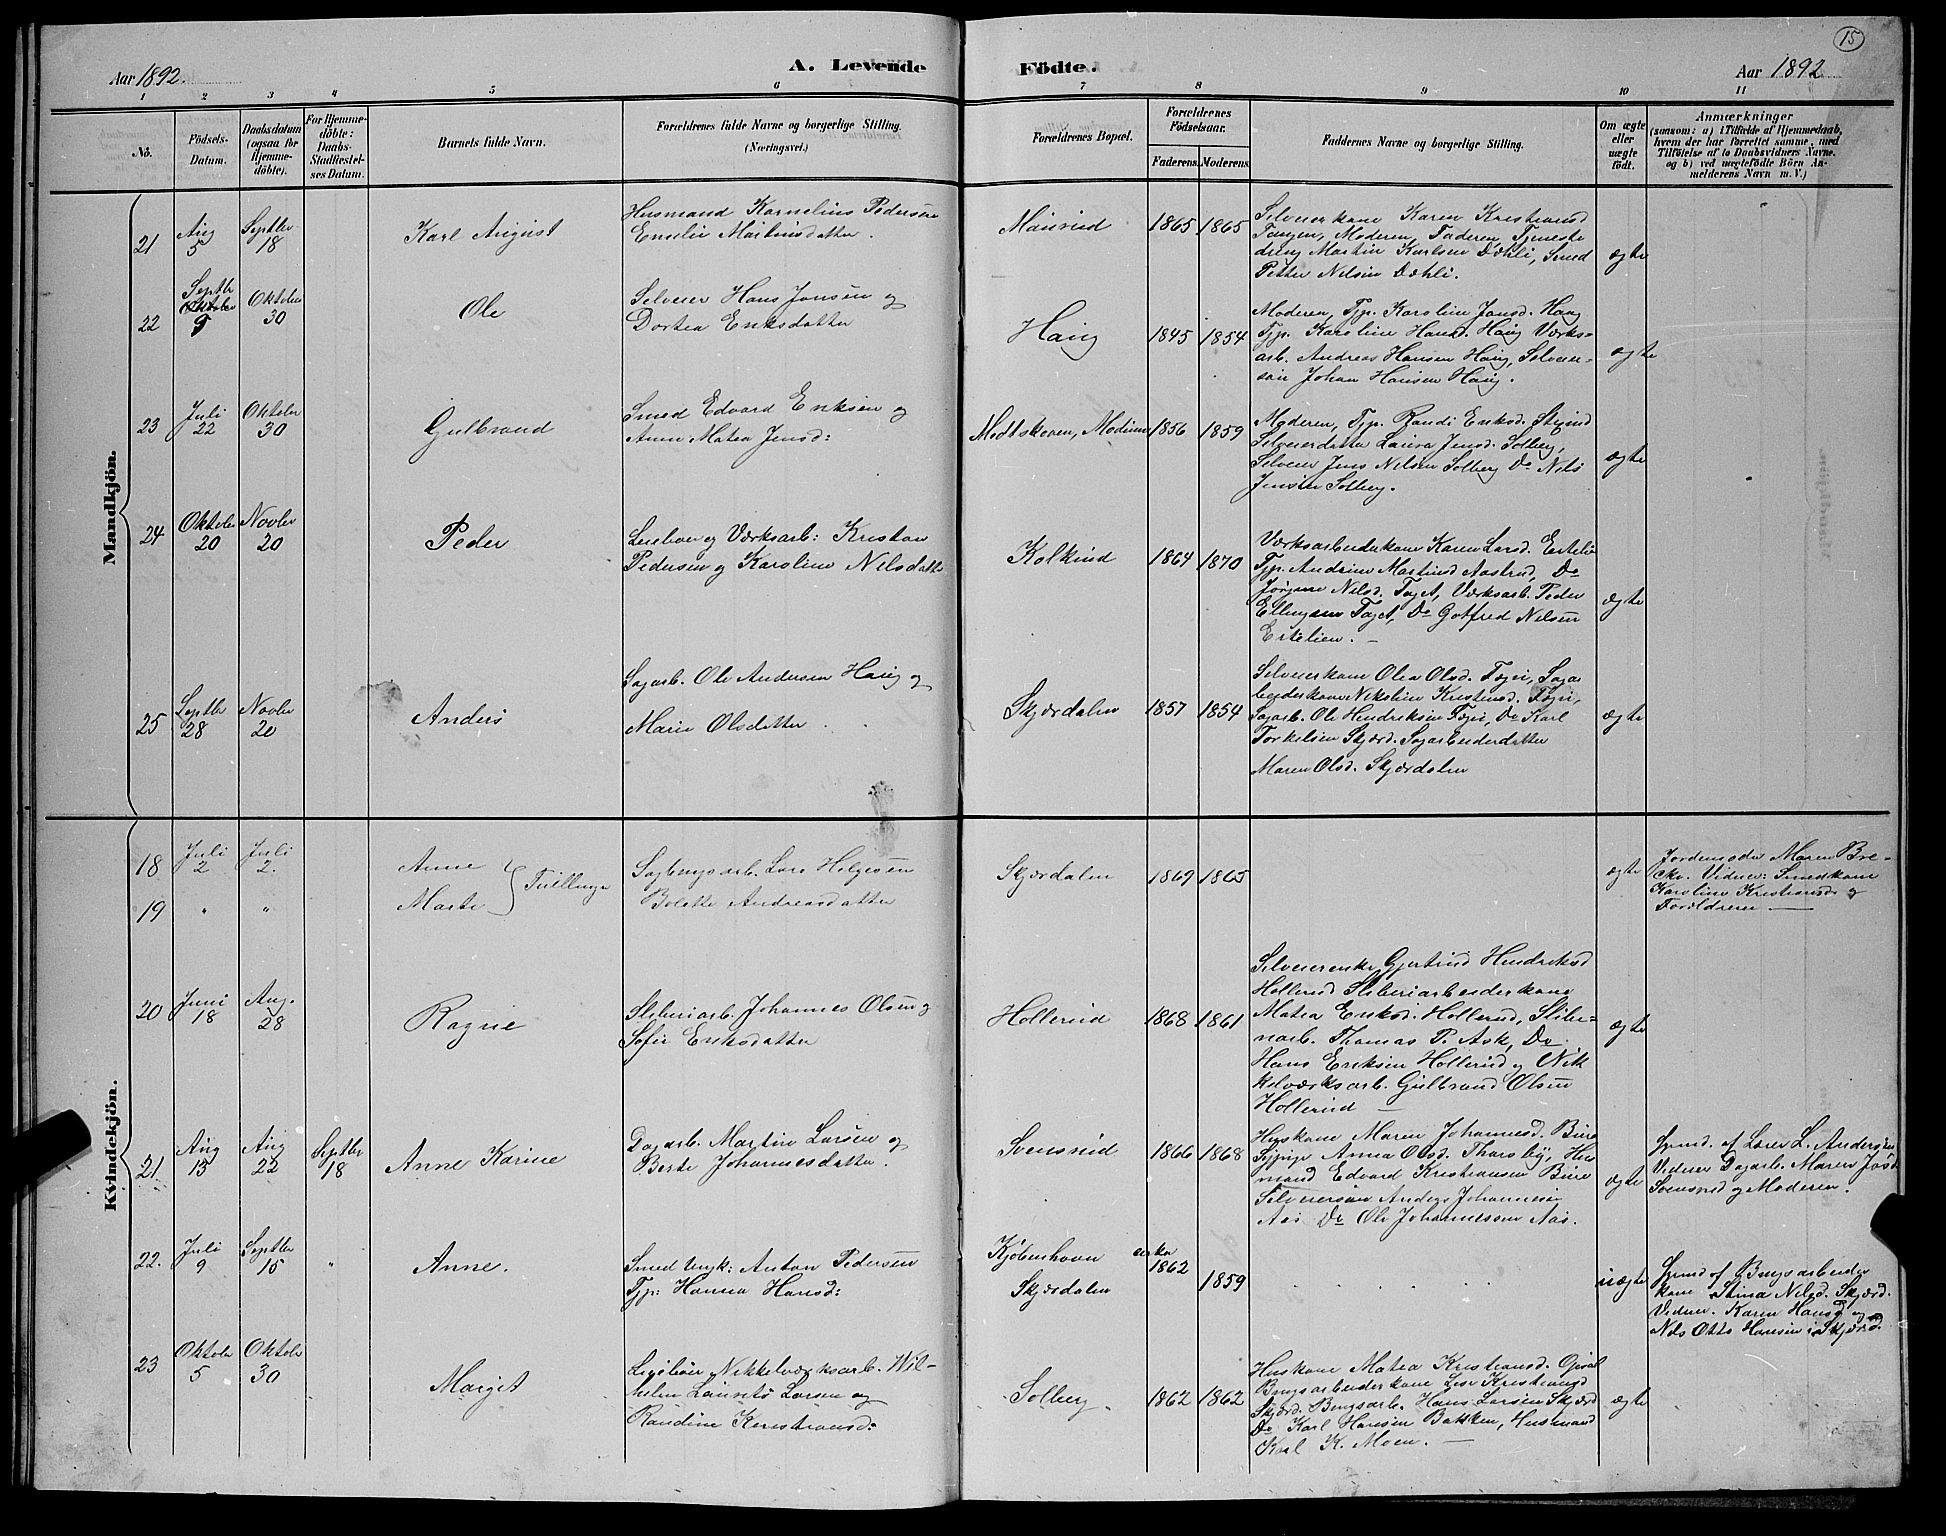 15
Aar 1892.
A. Levende Födte.
Aar 1892
1 2 3 4 5 6 7 8 9 10 11
No.
Födsels-Datum.
Daabsdatum (ogsaa for Hjemmedöbte).
For Hjemmedöbte: Daabs-Stadfæstelses Datum.
Barnets fulde Navn.
Forældrenes fulde Navne og borgerlige Stilling. (Næringsvei.)
Forældrenes Bopæl.
Forældrenes Födselsaar.
Faderens. Moderens.
Faddernes Navne og borgerlige Stilling.
Om ægte eller uægte födt.
Anmærkninger
(saasom: a) i Tilfælde af Hjemmedaab,
hvem der har forrettet samme, med
Tilföielse af to Daabsvidners Navne,
og b) ved uægtefödte Börn An-
melderens Navn m. V.)
Mandkjön.
21
Aug 5
Septbr 18
Karl August
Husmand Kornelius Pedersen
Emilie Martinsdatter.
1865 1865
Selveierkone Karen Kristiansd
Tangen, Moderen, Faderen, Tjeneste
dreng Martin Karlsen Dæhli, Smed
Petter Nilsen Dæhli.
ægte
22
Septbr
Oktober
9
Oktober 30
Ole
Selveier Hans Jonsen og
Dortea Eriksdatter
Haug
1845 1854
Moderen, Typ. Karoline Jonsd. Haug
Typ. Karoline Hansd. Haug Værks-
arb. Andreas Hansen Haug, Selveier-
søn Johan Hansen Haug.
ægte
23
Juli 22
Oktober 30
Gulbrand
Smed Edvard Eriksen og
Anne Matea Jensd:
Modtskoven, Modum
1856 1859
Moderen, Typ. Randi Eriksd.
Selveierdatter Laura Jensd. Solberg,
Selveier Jens Nilsen Solberg Do Nils
Jensen Solberg.
ægte
24
Oktober 20
Novbr 20
Peder
Leieboer og Værksarb: Kristian
Pedersen og Karoline Nilsdatter
1864 1870
Værksarbeiderkone Karen Larsd. Ertelie
Typ. Andrine Martinsd Aastrud, Do
Jørgine Nilsd. Taget, Værksarb. Peder
Ellingsen Taget, Do Gotfred Nilsen
Ertelien. —
ægte
25
Septbr 28
Novbr 20
Anders
Sagarb. Ole Andersen Haug og
Marie Olsdatter
Skjærdalen
1857 1854
Selveierkone Olea Olsd. Fegri, Saga
beiderkone Nikoline Kristensd. Fegri,
Sagarb. Ole Hendriksen Fegri, Do Karl
Torkelsen Skjærd. Sagarbeiderdatter
Maren Olsd. Skjærdalen
ægte
Kvindekjön.
18
Juli 2
Juli 2.
Anne
19
" "
Marte
} Tvillinger
Sagbrugsarb. Lars Helgesen
Bolette Andreasdatter
Skjærdalen
1869 1865
ægte
Jordemoder Maren Bre-
cke. Vidner: Smedkone
Karoline Kristiansd og
Forældrene —
20
Juni 18
Aug. 28
Ragne
Sliberiarb. Johannes Olsen og
Sofie Eriksdatter
Hollerud
1868 1861
Selveierenke Gjertrud Hendriksd
Hollerud Sliberiarbeiderkone
Matea Eriksd. Hollerud, Slibe-
riarb. Thomas P. Ask, Do.
Hans Eriksen Hollerud og Nik
kelværksarb. Gulbrand Olsen
Hollerud —
ægte
21
Aug 13
Aug 22
Septbr 18
Anne Karine
Dagarb. Martin Larsen og
Berte Johannesdatter.
Svensrud
1866 1868
Huskone Maren Johannesd. Bure
Sypige Anna Olsd. Thorsby, Hus
mand Edvard Kristiansen Bure
Selveiersøn Anders Johannesen
Aas Do Ole Johannessen Aas.
ægte
Hjemd. af Lærer L. Andersen
Vidner Dagarb. Maren
Svensrud og Moderen.
22.
Juli 9
Septbr 15
"
Anne.
Smed Ungk: Anton Pedersen
Typ: Hanna Hansd:
Kjøbenhavn
Skjærdalen
cirka 1862
1859
uægte
Hjemd af Brugsarbeider
kone Stina Nilsd. Skjærd.
Vidner. Karen Hansd og
Nils Otto Hansen i Skjærd.
23
Oktober 5
Oktober 30
Margit
Leieboer Nikkelværksarb. Wil-
helm Laurits Larsen og
Randine Kristiansd:
Solberg.
1862 1862
Huskone Matea Kristiansd. Opsal
Brugsarbeiderkone Lise Kristiansd
Skjærd. Brugsarb. Hans Larsen Skjærd
Do Karl Hansen Bakken, Husmand
Karl K. Moen. —
ægte